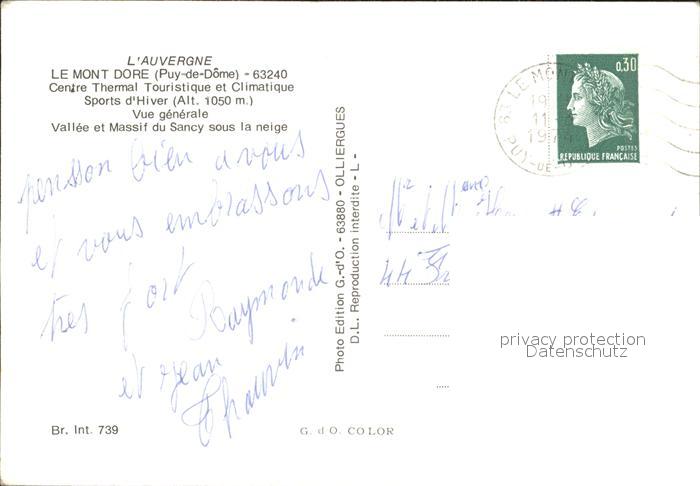 L'AUVERGNE
LE MONT DORE (Puy-de-Dôme) - 63240
Centre Thermal Touristique et Climatique
Sports d'Hiver (Alt. 1050 m.)
Vue générale
Vallée et Massif du Sancy sous la neige
pensson bien a vous
et vous embrassons
tres fort
Raymonde
et Jean
Chauvin
Br. Int. 739
Photo Edition G.-d'O. - 63880 - OLLIERGUES
D.L. Reproduction interdite - L -
G. d O. COLOR
63 LE MONT
19
11
PUY-DE-D
0,30
POSTES
REPUBLIQUE FRANÇAISE
et
44
privacy protection
Datenschutz